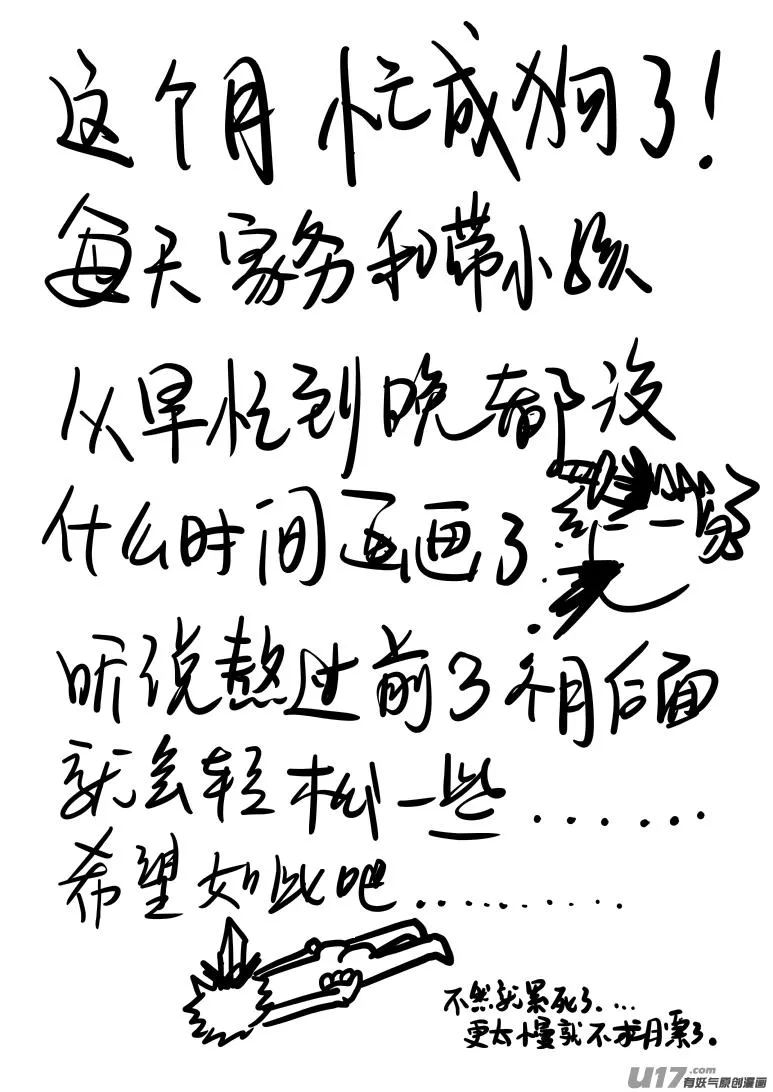 这个月忙成狗了!
每天家务和带小孩
从早忙到晚都没
什么时间画画了..
听说熬过前3个月后面
就会轻松一些......
希望如此吧..........
不然就累死了....
更太慢就不求月票了。
U17.com
有妖气原创漫画